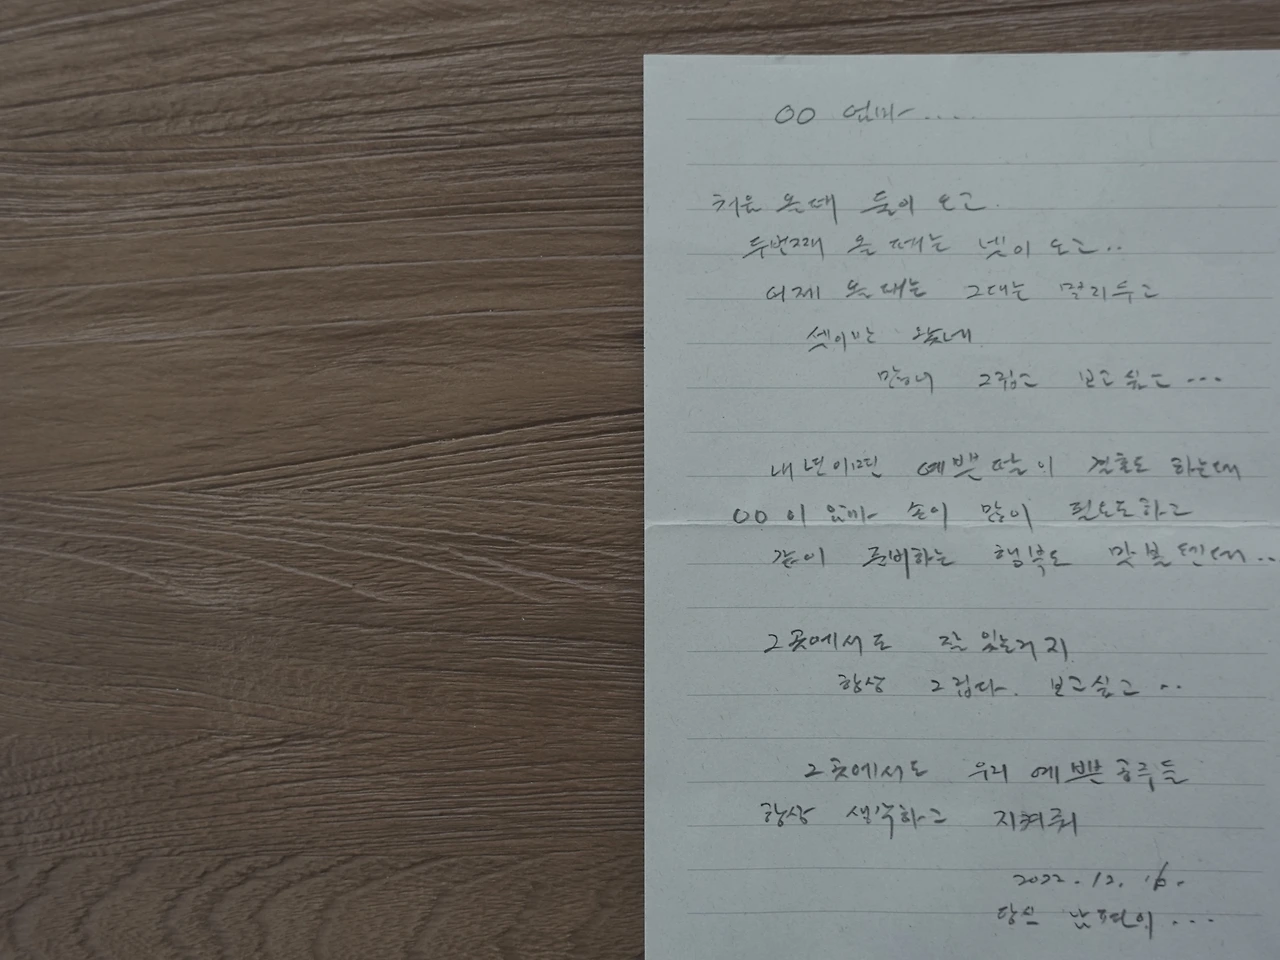 OO 엄마.....
처음 올때 둘이 오고.
두번째 올 때는 넷이 오고..
이제 올 때는 그대는 멀리두고
셋이만 왔네
많이 그립고 보고싶고...
내년이면 예쁜딸이 결혼도 하는데
OO이 엄마 손이 많이 필요도하고
같이 준비하는 행복도 맛볼텐데..
그곳에서도 잘 있는거지
항상 그립다. 보고싶고..
그곳에서도 우리 예쁜공주들
항상 생각하고 지켜줘
2022.12.16.
당신 남편이...